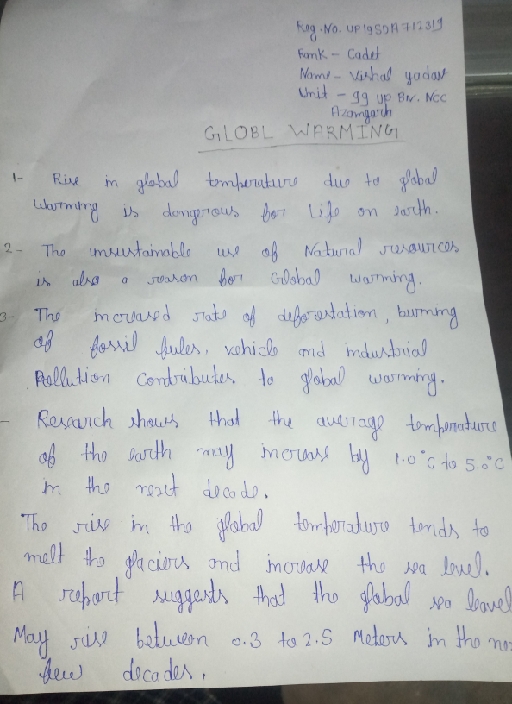 Reg. No. UP19SDA712319
Rank - Cadet
Name - Vishal yadav
Unit - 99 UP Bn. NCC
Azamgarh
GLOBL WARMING
1- Rise in global temperature due to global
Warming is dangerous for life on earth.
2- The unsustainable use of Natural resources
is also a reason for Global warming.
3- The increased rate of deforestation, burning
of fossil fules, vehicle and industrial
Pollution Contributes to global warming.
- Research shows that the average temperature
of the earth may increase by 1.0°c to 5.0°C
in the next decade.
The rise in the global temperature tends to
melt the glaciers and increase the sea level.
A report suggests that the global sea leavel
May rise between 0.3 to 2.5 Meters in the ne
few decades.